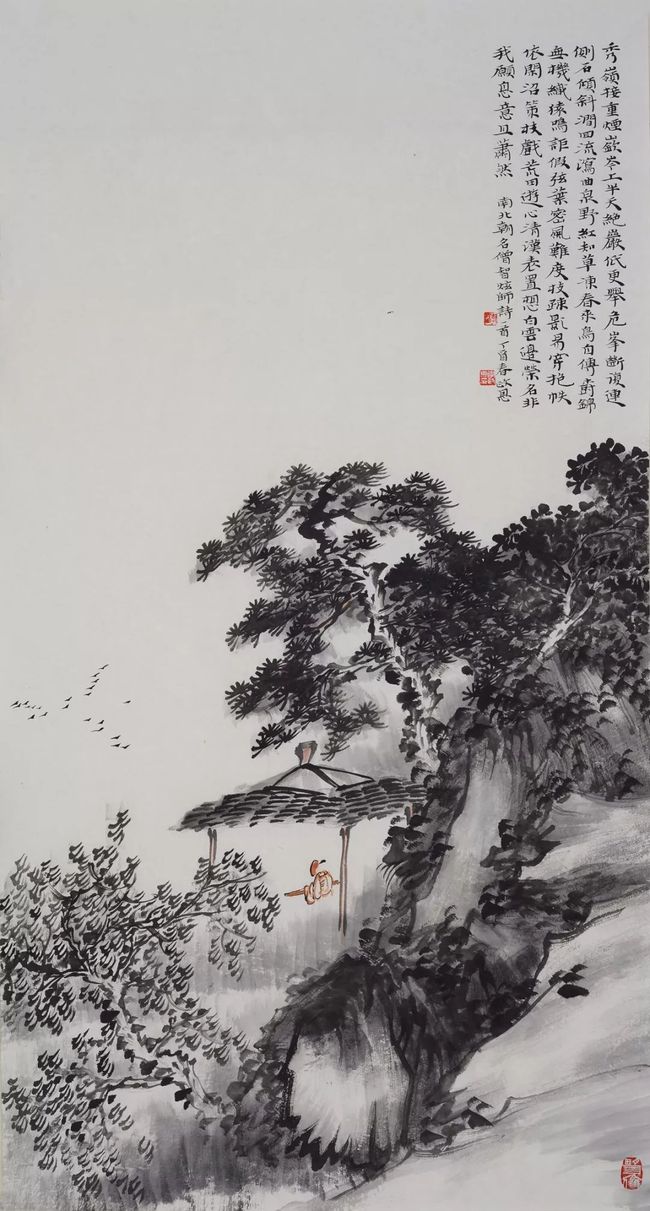 秀嶺接重煙嶔岑上半天絕巖低更舉危峯斷復連
側石傾斜澗回流瀉曲泉野紅知草凍春來鳥自傳樹錦
無機織猿鳴詎假弦葉密風難度枝疎影易穿抱帙
依閑沼策杖戲荒田遊心清漢表置想白雲邊榮名非
我願息意且蕭然 南北朝名僧智炫師詩一首丁酉春